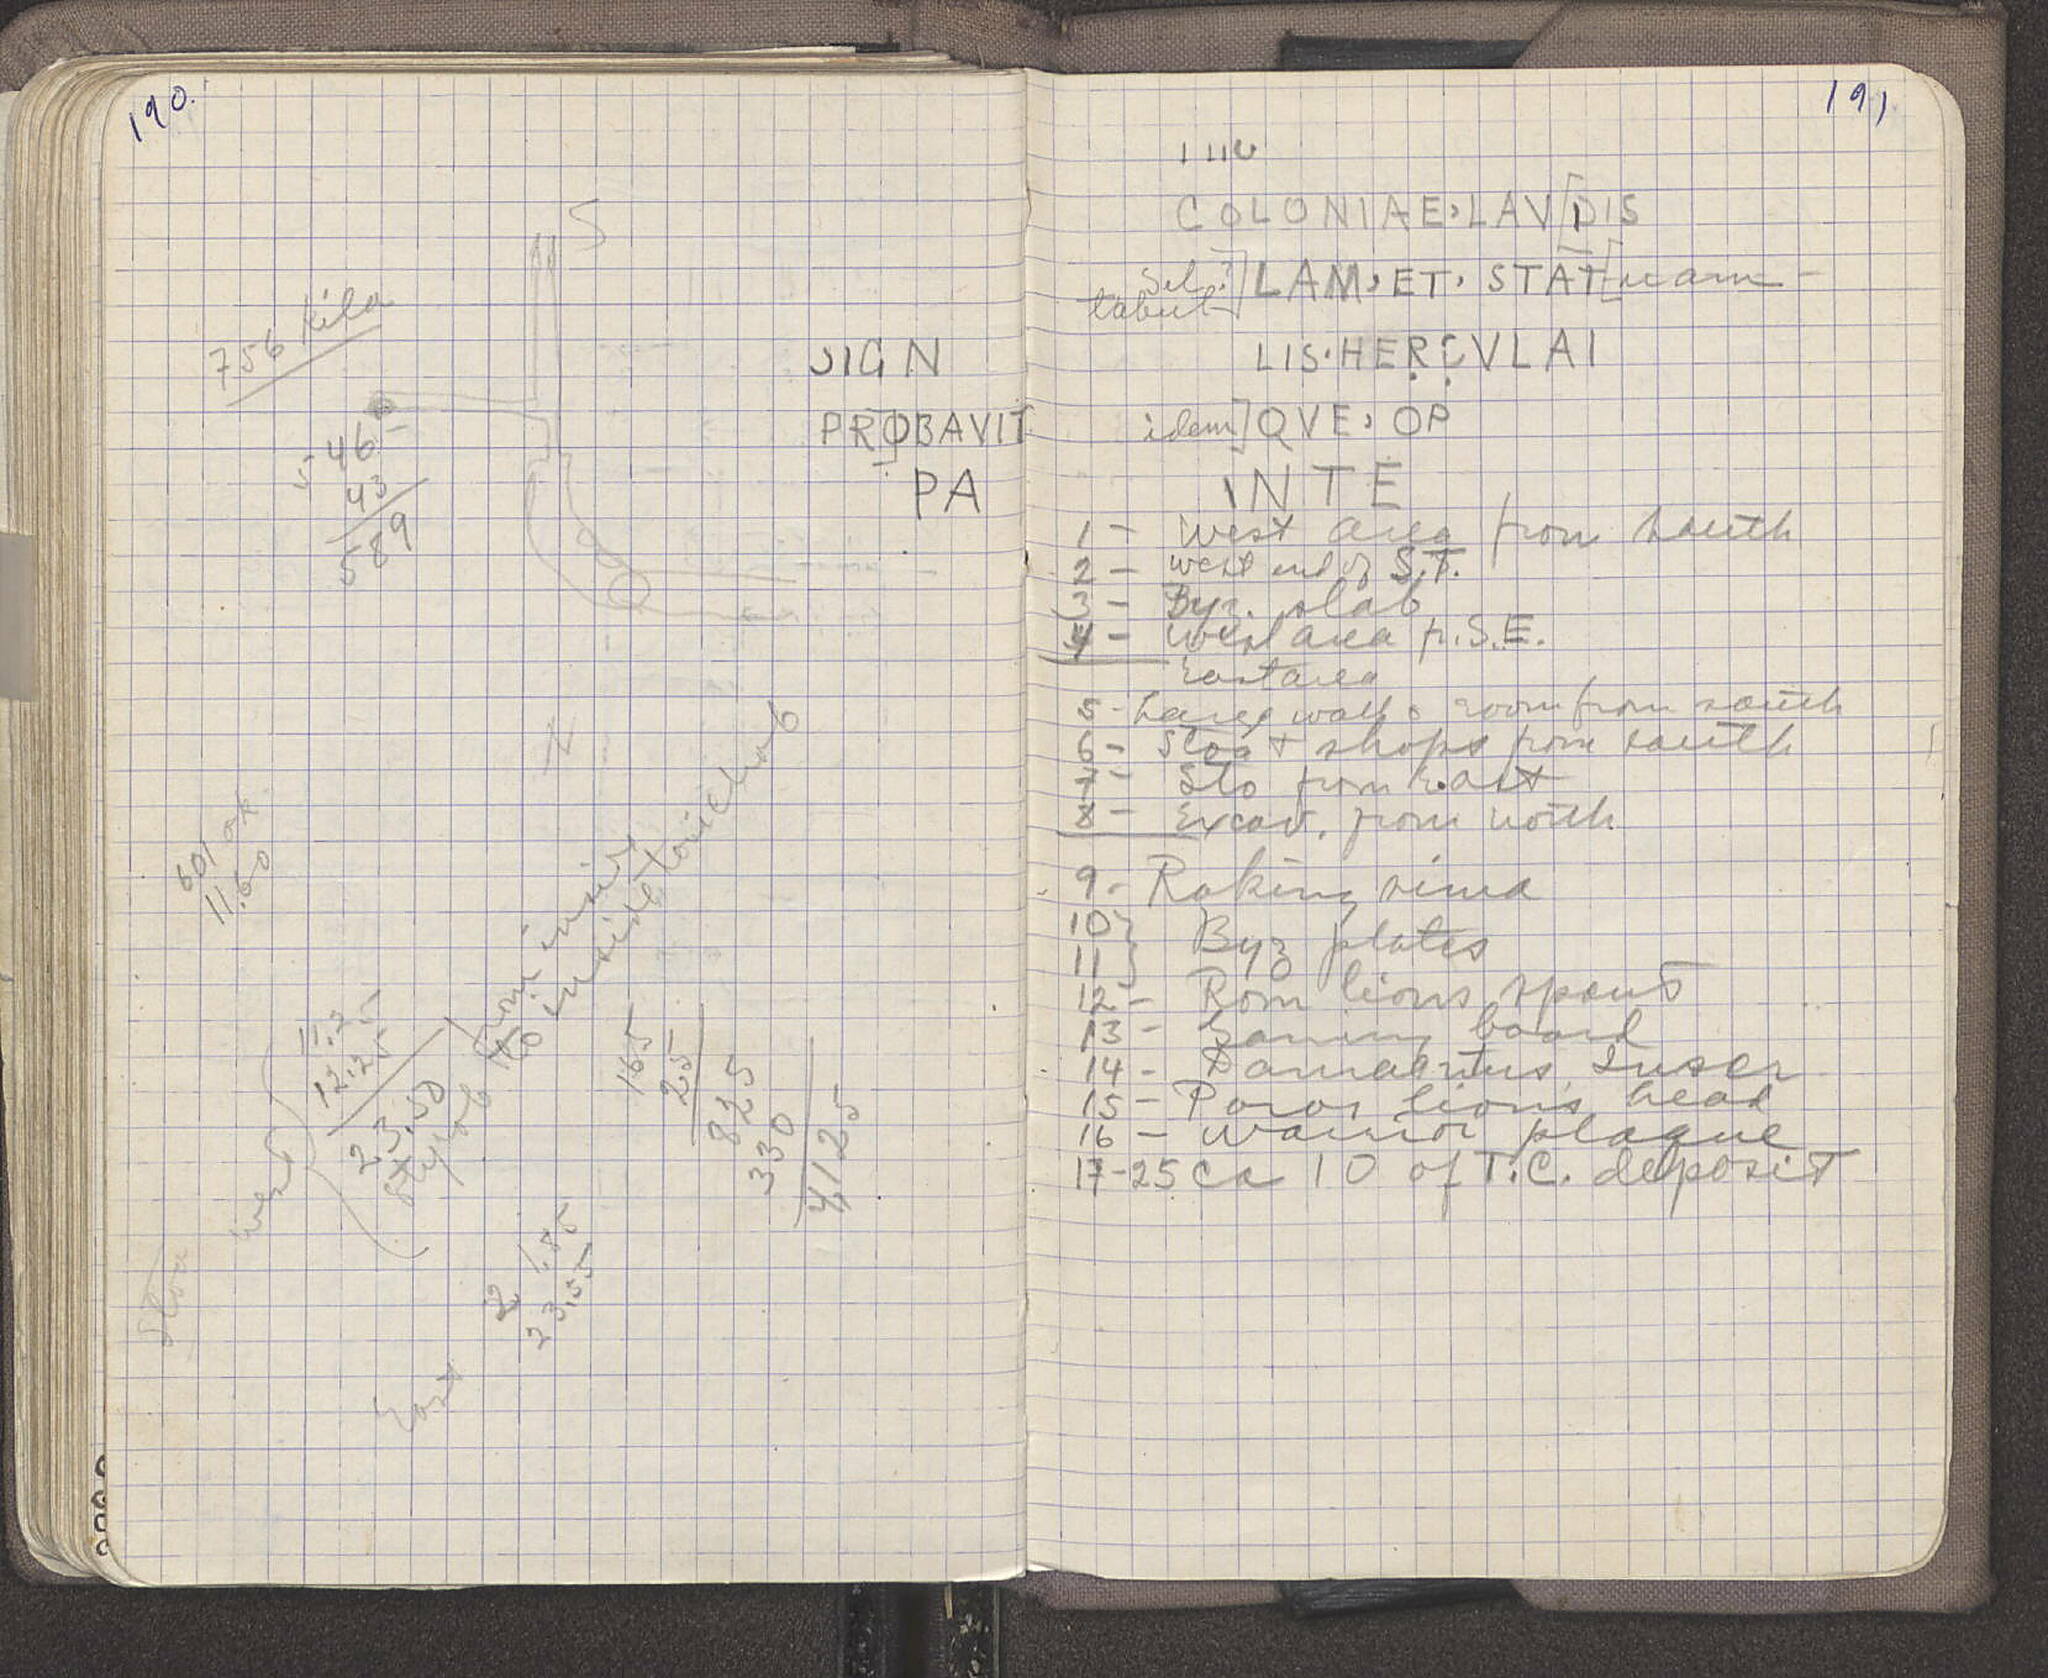 190.
5
756 kila
546
43
589
SIGN
PRO]BAVIT
PA
601 ok.
11.60
11.25
12.25
23.50
West
stylob from inside
to inside toichob
165
25
825
330
4125
Stoa
East
2 1.85
23.55
191
COLONIAE, LAV[DIS
Sel?] LAM, ET, STAT[uam -
tabul
LIS · HERCVLAI
idem] QVE, OP
INTE
1 - West area from south
2 - West end of S.T.
3 - Byz. slab
4 - West area fr. S.E.
East area
5 - Large wall & room from south
6 - Stoa + shops from south
7 - Sto from East
8 - Excav. from north
9 - Raking sima
10}
11} Byz plates
12 - Rom lions spout
13 - Gaming board
14 - Damaenetus Inscr
15 - Poros lion's head
16 - Warrior plaque
17-25 ca 10 of T.C. deposit